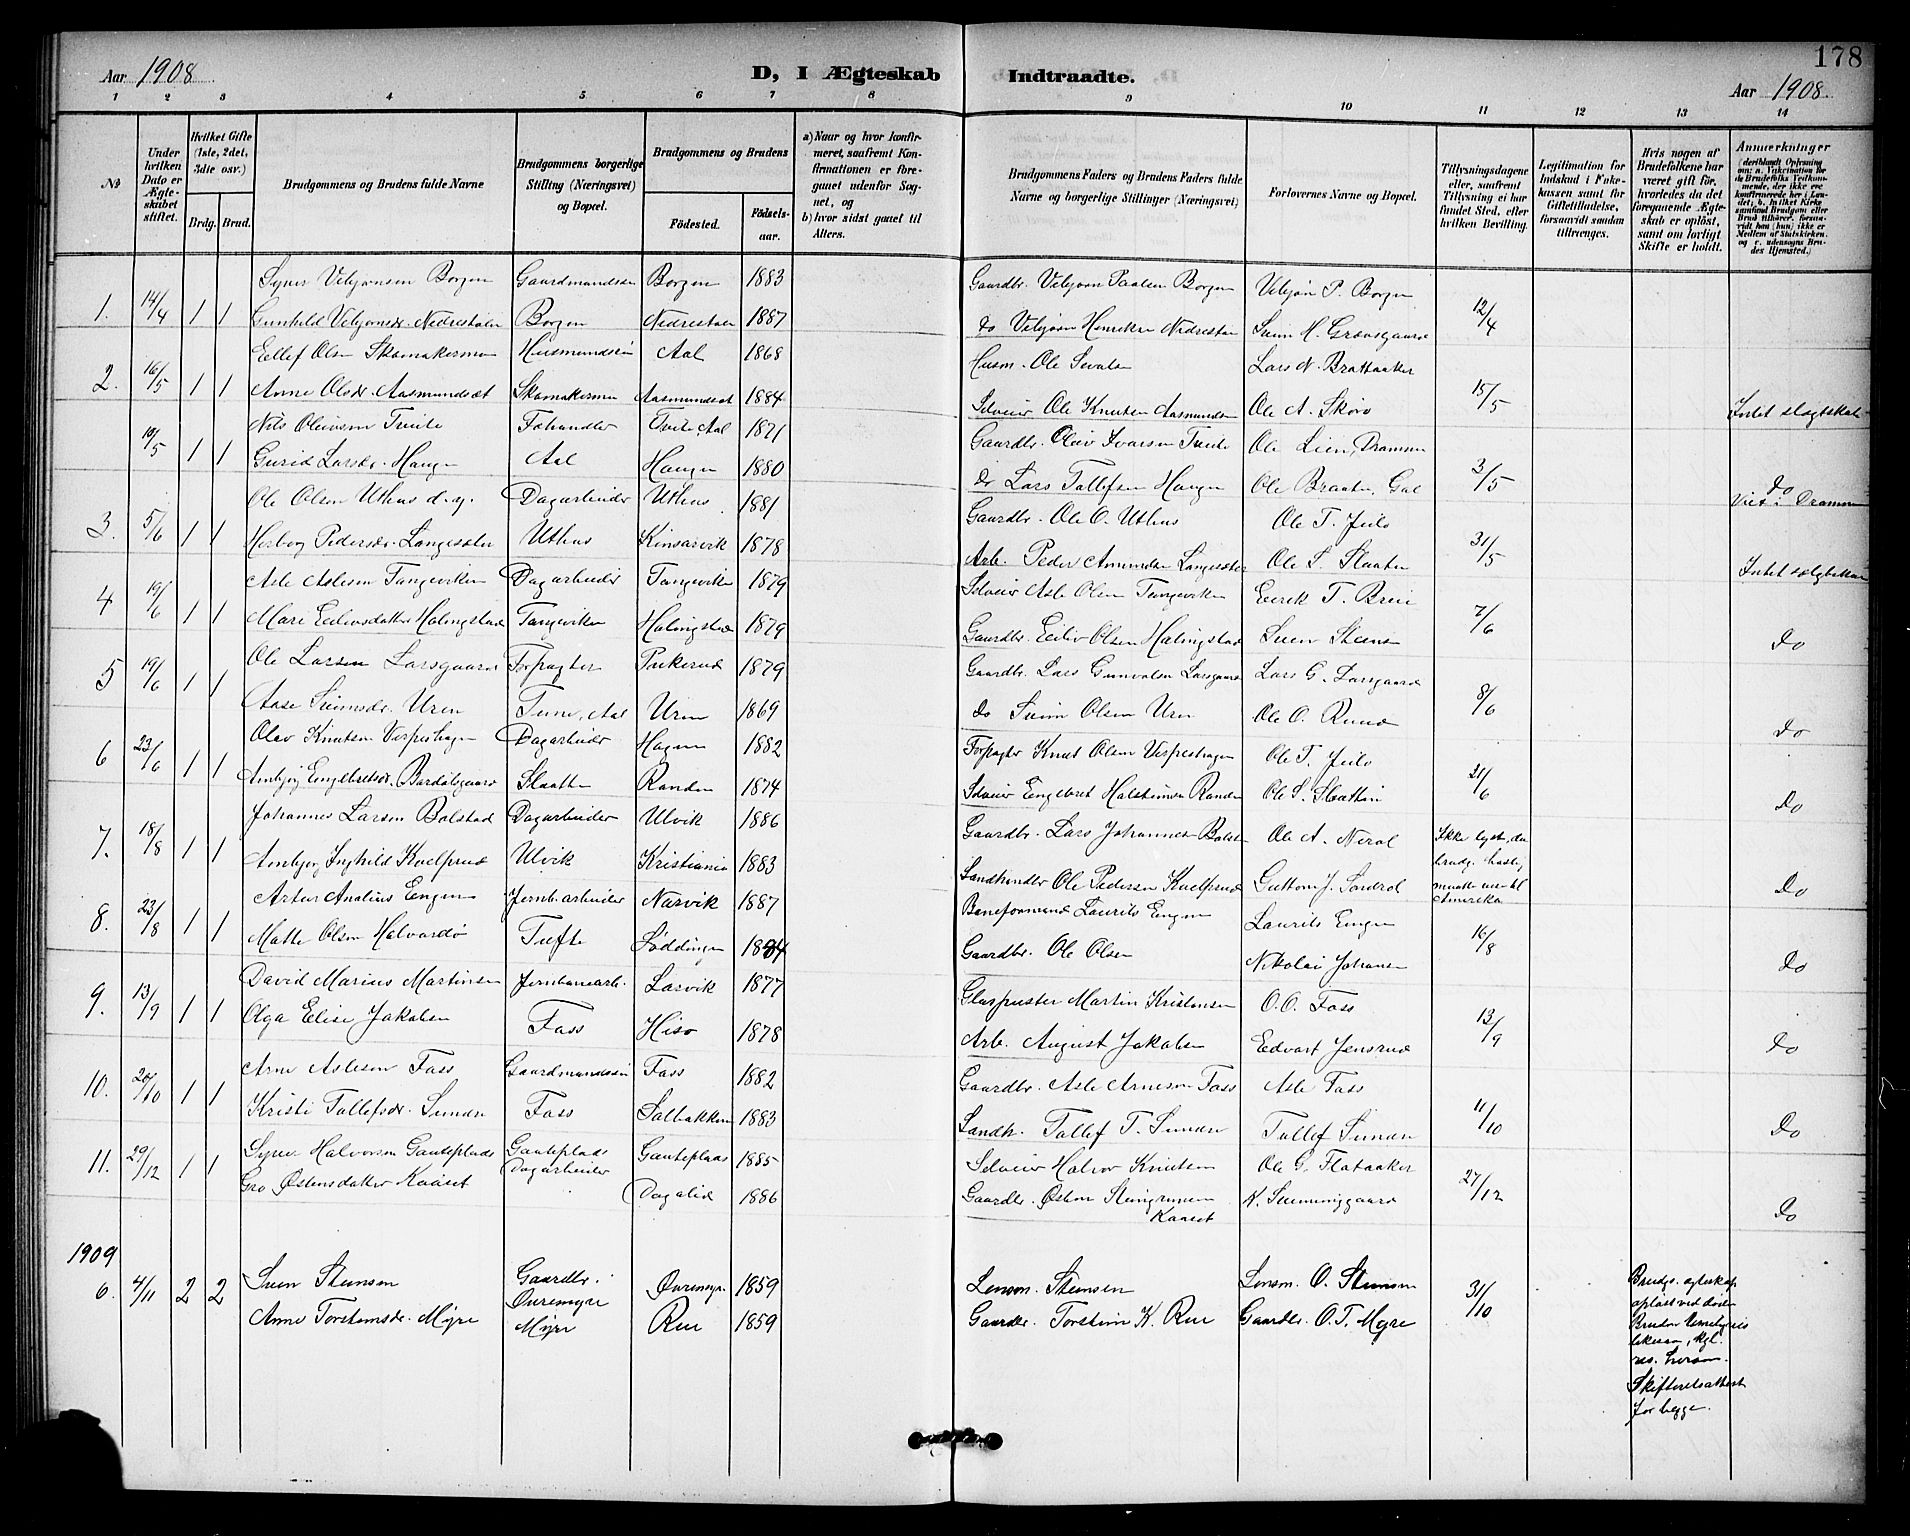 178
Aar 1908.
D, I Ægteskab Indtraadte.
Aar 1908.
1 2 3 4 5 6 7 8 9 10 11 12 13 14
No
Under hvilken Dato er Ægteskabet stiftet.
Hvilket Gifte (1ste, 2det, 3die osv.)
Brdg. Brud.
Brudgommens og Brudens fulde Navne
Brudgommens borgerlige Stilling (Næringsvei) og Bopæl.
Brudgommens og Brudens
Fødested.
Fødselsaar.
a) Naar og hvor konfirmeret, saafremt Konfirmationen er foregaaet udenfor Sognet, og
b) hvor sidst gaaet til Alters.
Brudgommens Faders og Brudens Faders fulde Navne og borgerlige Stillinger (Næringsvei)
Forlovernes Navne og Bopæl.
Tillysningsdagene eller, saafremt Tillysning ei har fundet Sted, efter hvilken Bevilling.
Legitimation for Indskud i Enkekassen samt for Giftetilladelse, forsaavidt saadan tiltrænges.
Hvis nogen af Brudefolkene har været gift før, hvorledes da det foregaaende Ægteskab er opløst, samt om lovligt Skifte er holdt.
Anmærkninger
1. 14/4 1 1
Syver Vebjørnsen Borgen Gaardmandssøn Borgen 1883 Gaardbr. Vebjørn Paalsen Borgen Vebjørn P. Borgen 12/4
Gunhild Vebjørnsdr. Nedrestølen Borgen Nedrestølen 1887 do Vebjørn Henriksen
2. 16/5 1 1
Eellef Olsen Skomakermoen Husmandssøn Aal 1868 Husm. Ole Lars N. Brattaaker 15/5
Anne Olsdr. Aasmundsæt Skomakermoen Aasmundsæt 1884 Selveier Ole Knutsen Aasmundsæt Ole A. Skøro Intet slægtskab
10/5 1 1
Nils Tveito Fehandler Tveito, Aal 1871 Gaardbr. Ole Lien, Drammen 3/5
Gurid Larsdr. Haugen Aal Haugen 1880 do Lars Tollefsen Haugen Ole Braaten, Gol do
Viet i Drammen
3. 5/6 1 1
Ole Olsen Uthus d.y. Dagarbeider Uthus 1881 Gaardbr. Ole O. Uthus Ole T. Jeilo 31/5
Herbog Pedersdr. Langesæter Uthus Kinsarvik 1878 Arb. Peder Langesæter
4 19/6 1 1
Asle Aslesen Tangeviken Dagarbeider Tangeviken 1879 Selveier Asle Olsen Tangeviken Eerik T. Breie 7/6
Mari Eilevsdatter Halingstad Tangeviken Halingstad 1879 Gaardbr. Eilev Olsen Halingstad do
5 19/6 1 1
Ole Larsen Larsgaard Forpagter 1879 Gaardbr. Lars Gunvalsen Larsgaard Lars G. Larsgaard 8/6
Aase Svensdr. Uren Tune, Aal Uren 1869 do Svein Olsen Uren Ole O. Ruud do
6 23/6 1 1
Olav Knutsen Verpeshagen Dagarbeider Hagen 1882 Forpagter Knut Olsen Verpeshagen Ole T. Jeilo 21/6
Ambjør Engebretsdr. Bardølsgaard Slaatten Randen 1874 Selveier Engebret Halsteinsen Randen Ole S. Slaatten do
7. 18/8 1 1
Johannes Larsen Bolstad Dagarbeider Ulvik 1886 Gaardbr. Lars Johannesen Bolstad Ole A. Neral Ikke lyst, da brudg. hastig maatte reise til Amerika
Ambjør Inghild Kvelprud Ulvik Kristiania 1883 Landhandler Ole Pedersen Kvelprud Guttorm J. Sondrol do
8. 23/8 1 1
Artur Analius Engen Jernb.arbeider Narvik 1887 Baneformand Laurits Engen Laurits Engen 16/8
Matte Olsen Halvardø Tufte Løddingen Gaardbr. Ole Olsen Nikolai Johansen do
9. 13/9 1 1
David Marius Martinsen Jernbanearb. Larvik 1877 Glaspuster Martin Kristensen O. O. Foss 13/9
Olga Elise Jakobsen Foss Hisø 1878 Arb. August Jakobsen Edvart Jensrud do
10. 20/10 1 1
Arne Aslesen Foss Gaardmandssøn Foss 1882 Gaardbr. Asle Arnesen Foss Asle Foss 11/10
Kristi Tollefsdr. Sundre Foss Solbakken 1883 Landh. Tollef T. Sundre Tollef Sundre do
11. 29/12 1 1
Syver Halvorsen Gauteplads Gauteplads Dagarbeider Gauteplads 1885 Selveier Halvor Knutsen Ole G. Flataaker 27/12
Gro Østensdatter Kaaset Dagalid 1886 Gaardbr. Østen Steingrimsen Kaaset K. Sveinunggaard do
1909
6. 4/11 2 2
Svein Steinsen Gaardbr. Øvremyre Øvremyr. 1859 Lensm. Steinsen Lensm. O. Steinsen 31/10
Anne Torsteinsdr. Myre Myre Rue 1859 Gaardbr. Torstein K. Rue Gaardbr. O. T. Myre
Brudg. egteskap opløst ved døden
Skifteretsattest for begge.